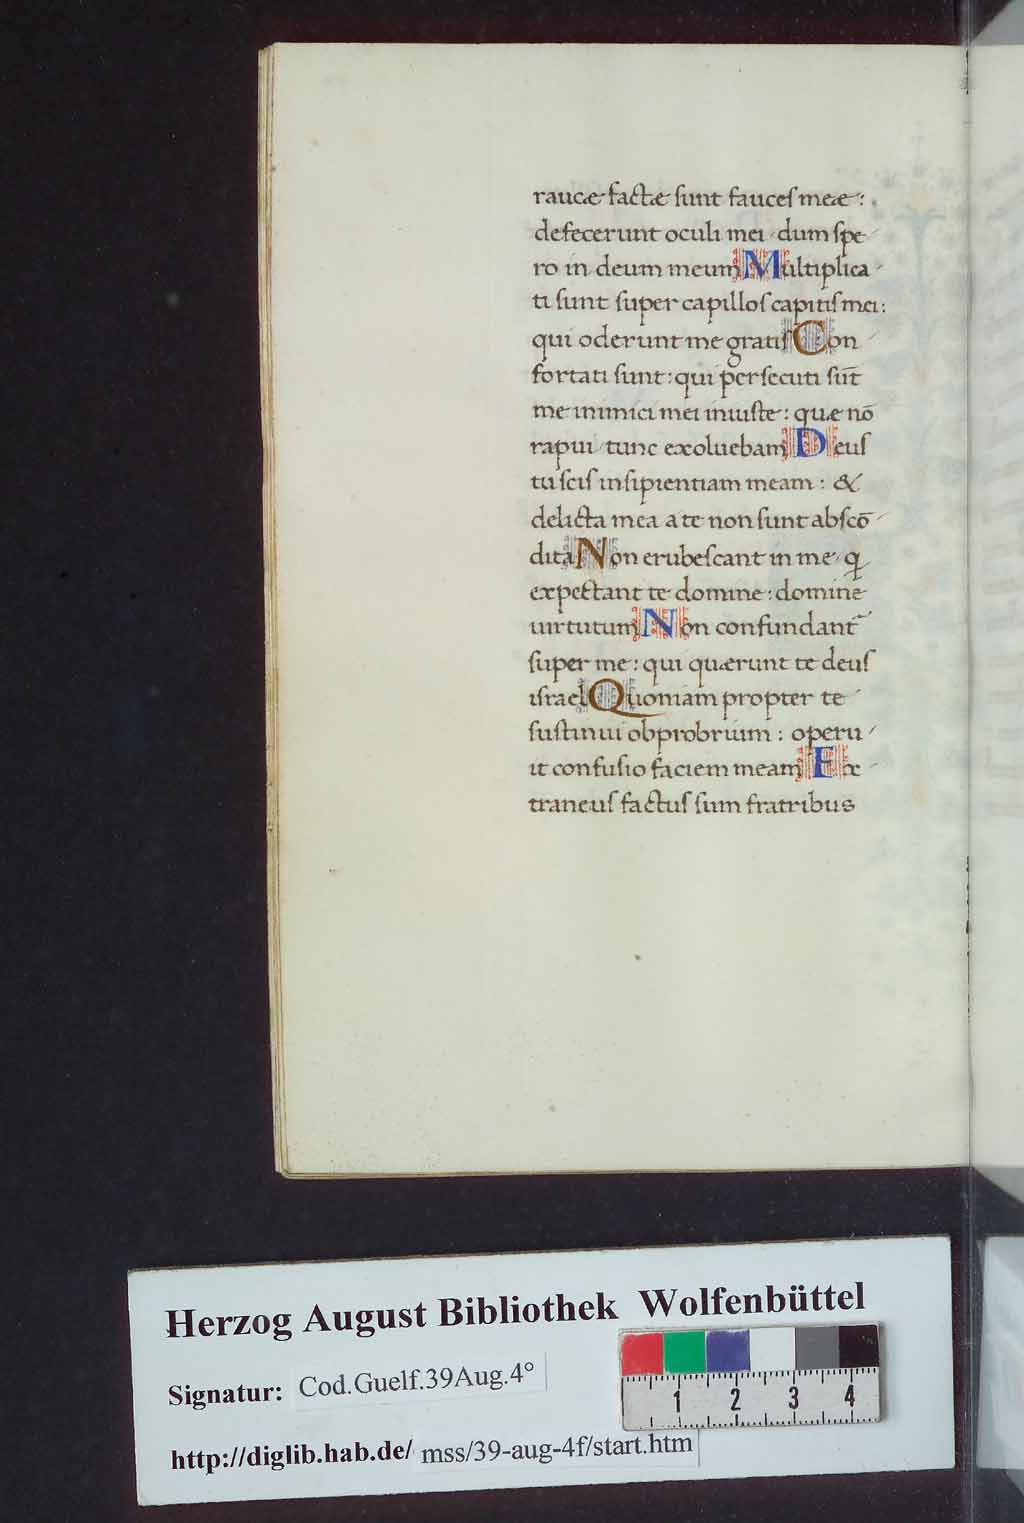 raucæ factæ sunt fauces meæ :
defecerunt oculi mei dum spe-
ro in deum meum Multiplica-
ti sunt super capillos capitis mei:
qui oderunt me gratis Con-
fortati sunt : qui persecuti sūt
me inimici mei iniuste : quæ nō
rapui tunc exoluebam Deus
tu scis insipientiam meam : &
delicta mea a te non sunt abscō-
dita Non erubescant in me q̣
expectant te domine : domine
uirtutum Non confundant᷑
super me : qui quærunt te deus
israel Quoniam propter te
sustinui obprobrium : operu-
it confusio faciem meam Ex-
traneus factus sum fratribus
Herzog August Bibliothek Wolfenbüttel
Signatur: Cod.Guelf.39Aug.4°
http://diglib.hab.de/ mss/39-aug-4f/start.htm
1 2 3 4